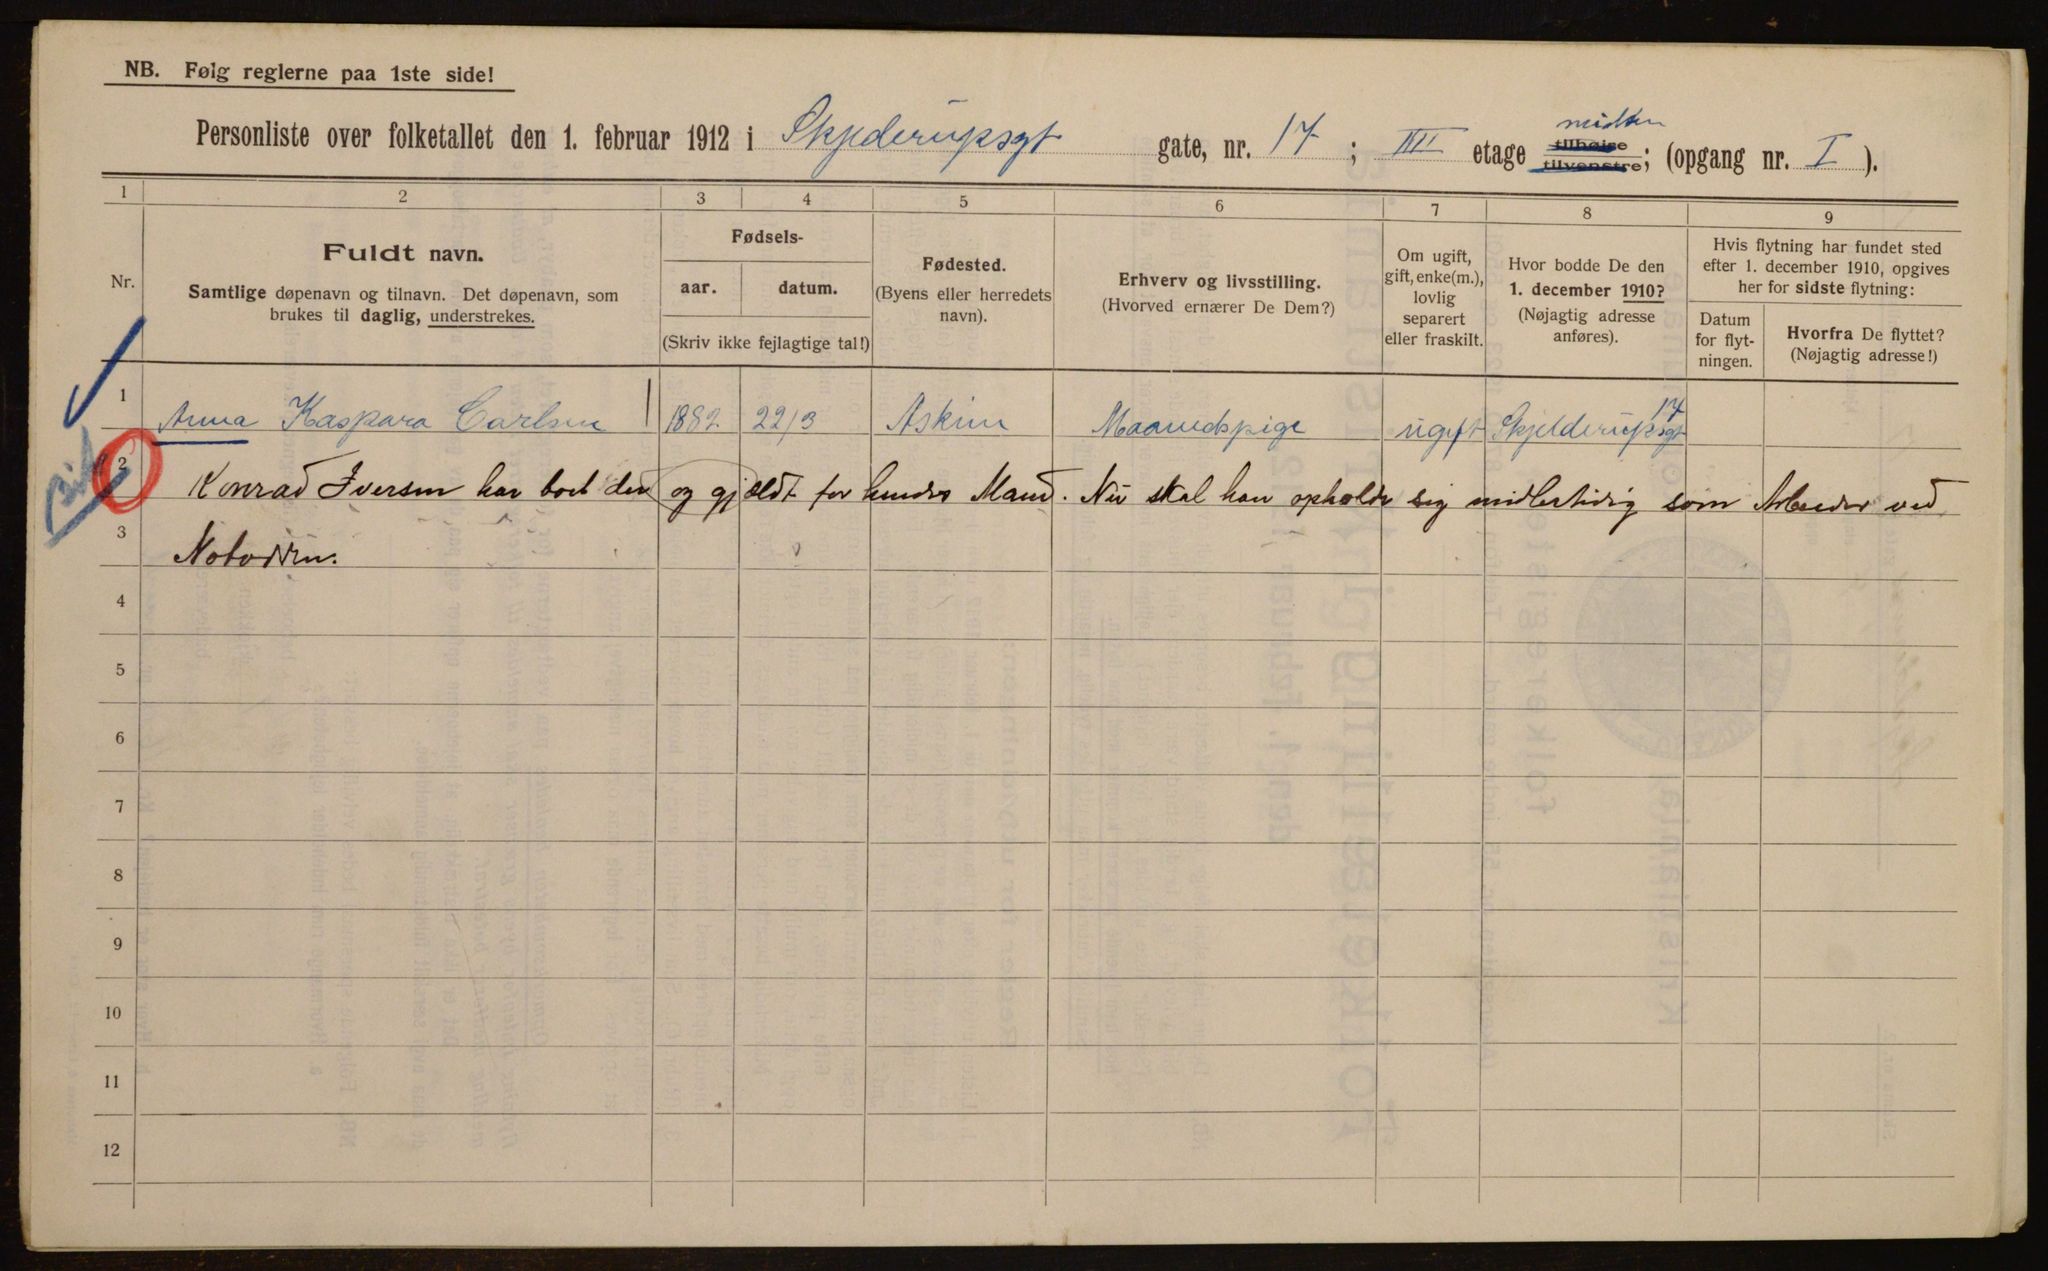 NB. Følg reglerne paa 1ste side!
Personliste over folketallet den 1. februar 1912 i Skjelderupsgt gate, nr. 17; IIII etage midten tilhøire tilvenstre; (opgang nr. I).
1 2 3 4 5 6 7 8 9
Nr.
Fuldt navn.
Samtlige døpenavn og tilnavn. Det døpenavn, som
brukes til daglig, understrekes.
Fødsels-
aar. datum.
(Skriv ikke fejlagtige tal!)
Fødested.
(Byens eller herredets
navn).
Erhverv og livsstilling.
(Hvorved ernærer De Dem?)
Om ugift,
gift, enke(m.),
lovlig
separert
eller fraskilt.
Hvor bodde De den
1. december 1910?
(Nøjagtig adresse
anføres).
Hvis flytning har fundet sted
efter 1. december 1910, opgives
her for sidste flytning:
Datum
for flyt-
ningen.
Hvorfra De flyttet?
(Nøjagtig adresse!)
1 Anna Kaspara Carlsen 1882 22/3 Askim Maanedspige ugift Skjelderupsgt 17
2 Konrad Iversen har boet der og gjældt for hendes Mand. Nu skal han opholde sig midlertidig som Arbeider ved
3 Notodden.
4
5
6
7
8
9
10
11
12